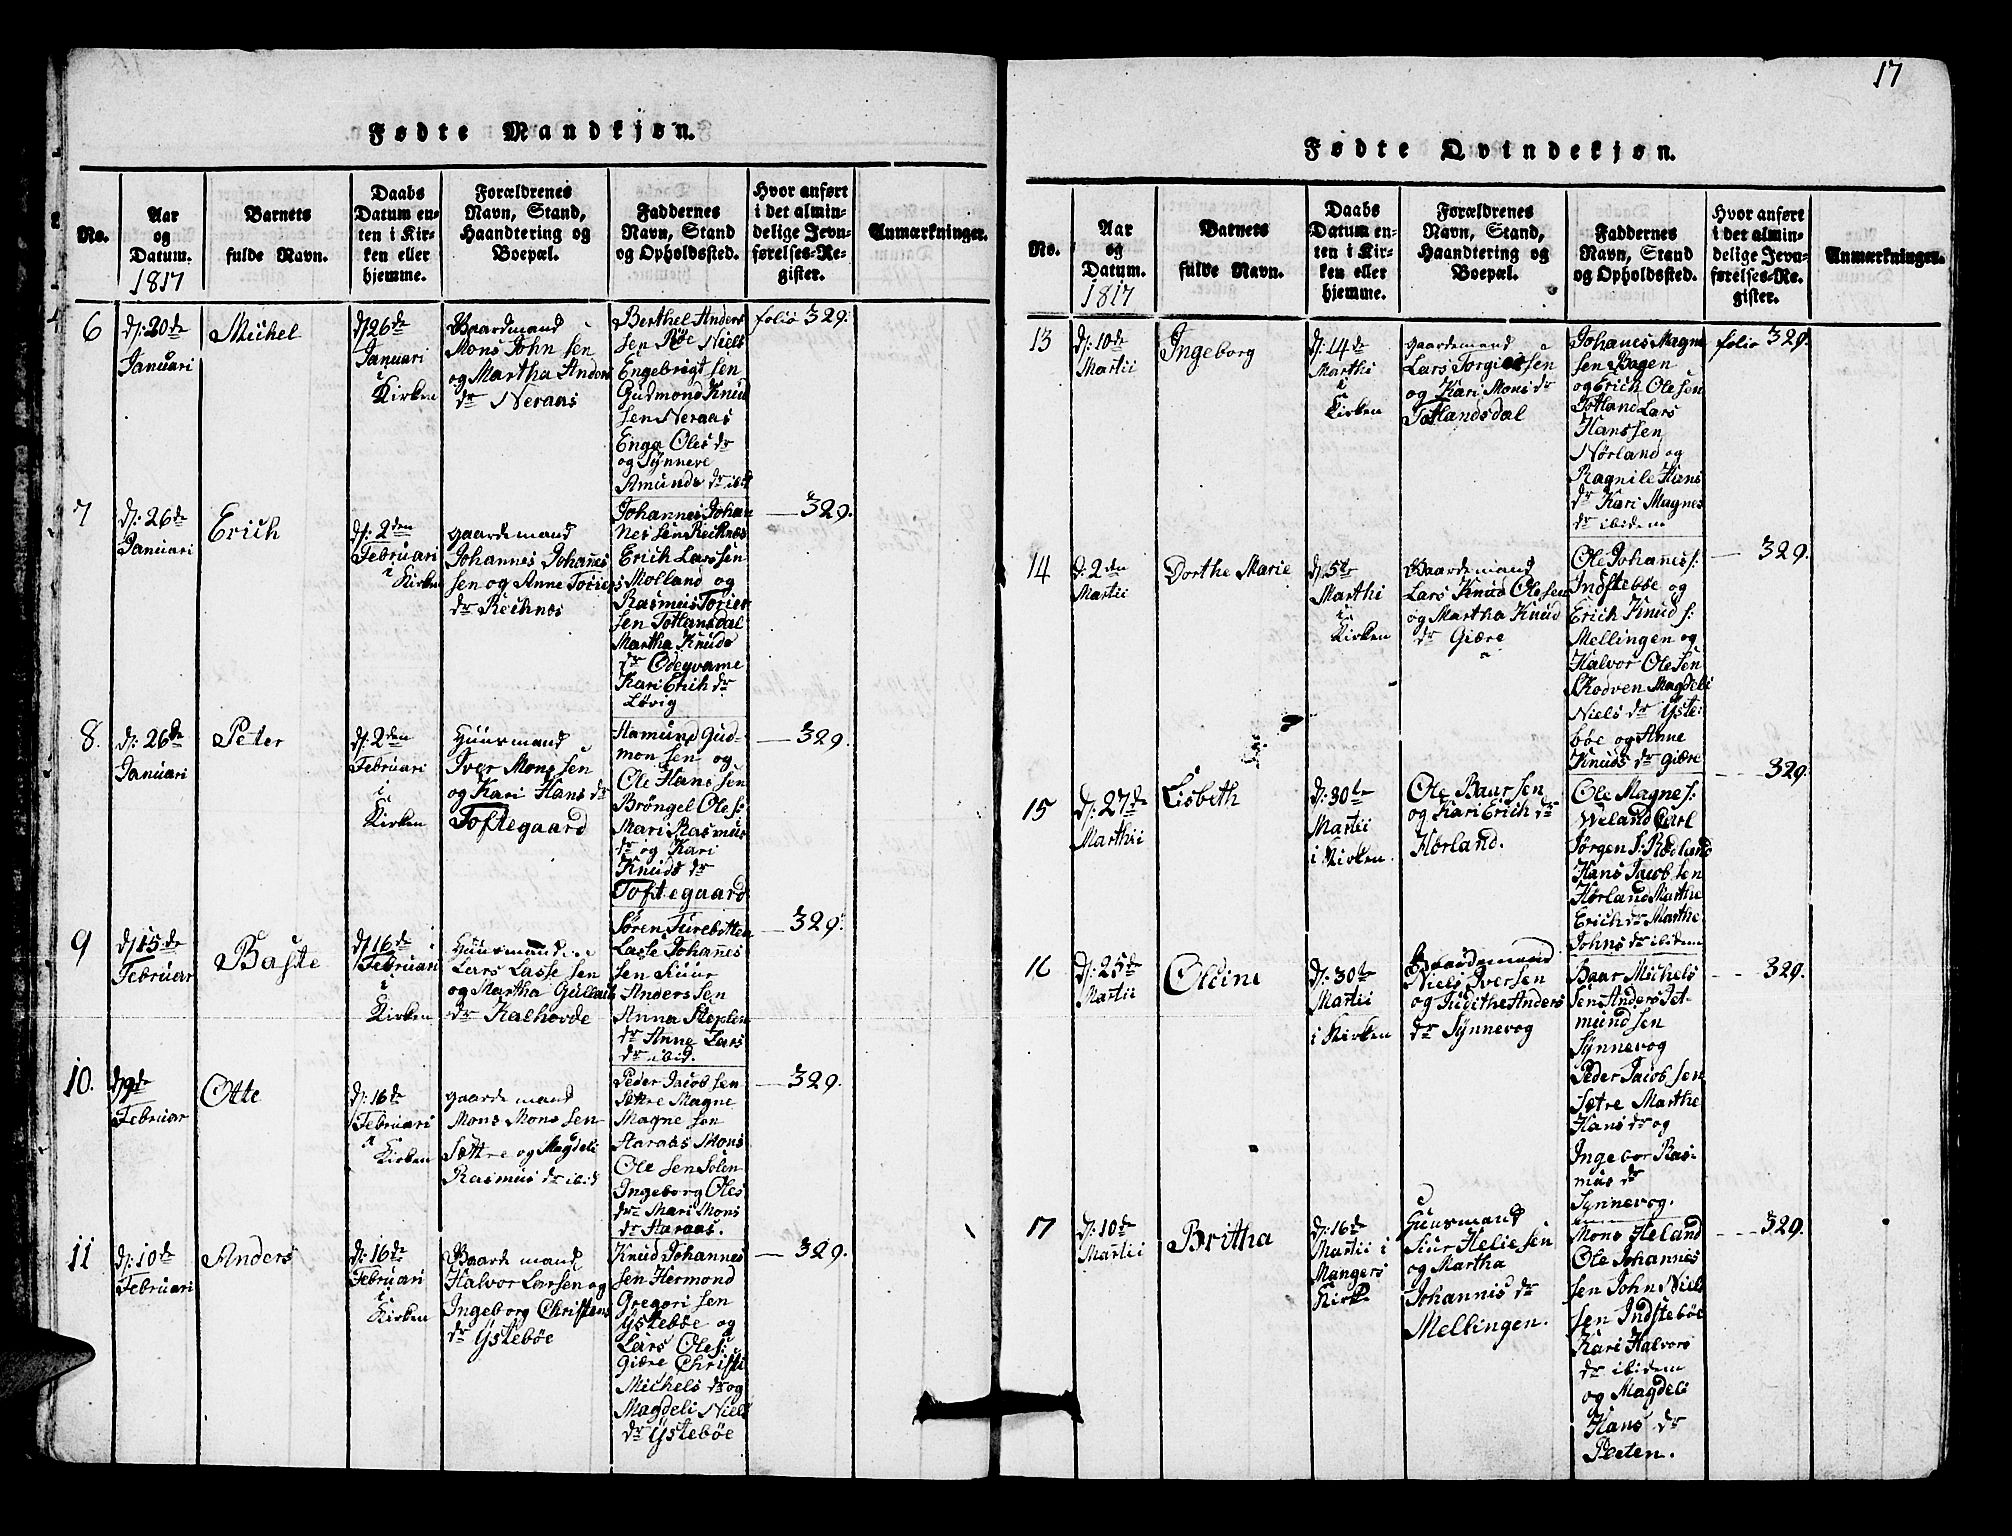 Fødte Mandkjøn.
No.
Aar
og
Datum.
1817
Barnets
fulde Navn.
Daabs
Datum en-
ten i Kir-
ken eller
hjemme.
Forældrenes
Navn, Stand,
Haandtering og
Boepæl.
Faddernes
Navn, Stand
og Opholdssted.
Hvor anført
i det almin-
delige Jevn-
førelses-Re-
gister.
Anmærkninger.
6
d: 20de
Januari
Michel
d 26de
Januari
i
Kirken
Gaardmand
Mons John sen
og Martha Anders
dr Neraas
Berthel Anders
sen Røe Niels
Engebrigt sen
Gudmond Knud
sen Neraas
Enga Oles dr
og Synneve
Amunds dr ibid
folio 329.
7
d: 26de
Januari
Erich
d: 2den
Februari
i
Kirken
gaardemand
Johannes Johañes
sen og Anne Tories
dr Recknes
Johannes Johan
nes sen Recknes
Erich Lars sen
Molland og
Rasmus Tories
sen Totlansdal
Martha Knuds
dr Ødegvame
Kari Erich dr
Løvig
329.
8.
d: 26de
Januari
Peter
d: 2den
Februari
i
Kirken
Huusmand
Iver Mons sen
og Kari Hans dr
Toftegaard
Hamund Gud-
mon sen og
Ole Hans sen
Brøngel Ole s:
Mari Rasmus
dr og Kari
Knuds dr
Toftegaard
329.
9
d 15de
Februar
Baste
d 16de
Februari
i
Kirken
Huusmand
Lars Lasse sen
og Martha Gullau
dr Kalhovde
Søren Turebotten
Lasse Johañes
sen Siuur
Anders sen
Anna Steplen
dr Anne Lars
dr ibid.
329.
10.
d 9de
Februar
Otte
d: 16de
Februari
i
Kirken
gaarde mand
Mons Mons sen
Sættre og Magdeli
Rasmus dr ibid
Peder Jacob sen
Sættre Magne
Magne sen
Haraas Mons
Ole sen Solen
Ingeborg Oles
dr Mari Mons
dr Haraas.
329.
11
d: 10de
Februari
Anders
d: 16de
Februari
i
Kirken
Gaarde mand
Halvor Larsen og
Ingeborg Christens
dr Ystebøe
Knud Johannes
sen Hermond
Gregori sen
Ystebøe og
Lars Oles:
Giære Christi
Michels dr og
Magdeli Niels
dr Ystebøe
329.
17
Fødte Qvindekjøn.
No.
Aar
og
Datum.
1817
Barnets
fulde Navn.
Daabs
Datum en-
ten i Kir-
ken eller
hjemme.
Forældrenes
Navn, Stand,
Haandtering og
Boepæl.
Faddernes
Navn, Stand
og Opholdssted.
Hvor anført
i det almin-
delige Jevn-
førelses-Re-
gister.
Anmærkninger.
13
d: 10de
Martii
Ingeborg
d: 14de
Marthi
i
Kirken
gaardemand
Lars Torgiersen
og Kari Mons dr
Totlandsdal
Johanes Magne
sen Bagen
og Erich Ole sen
Totland Lars
Hanssen
Nørland og
Ragnile Hans
dr Kari Magnes
dr ibidem
folio 329.
14
d: 2den
Martii
Dorthe Marie
d 5te
Marthi
i
Kirken
Gaardemand
Lars Knud Olesen
og Martha Knud
dr Giære
Ole Johañes s:
Indstebøe og
Erich Knud s:
Mellingen og
Halvor Olesen
Skodven Magdeli
Niels dr Yste:
bøe og Anne
Knuds dr giære
329.
15
d: 27de
Marthii
Lisbeth
d: 30te
Martii
i Kirken
Ole Baar sen
og Kari Erich dr
Hørland.
Ole Magne s:
Weland Carl
Jørgen s: Rødland
Hans Jacob sen
Hørland Marthe
Erich dr Marthe
Johns dr ibidem
329.
16
d: 25de
Martii
Oleine
d: 30te
Martii
i Kirken
Gaardemand
Niels Iversen
og Judithe Anders
dr Synnevog
Baar Michels
sen Anders Jet-
mund sen
Synnevog
Peder Jacob sen
Sætre Marthe
Hans dr og
Ingebor Ras-
mus dr
Synnevog.
329.
17
d: 10de
Martii
Britha
d: 16de
Martii i
Mangers
Kirke
Huusmand
Siur Heliesen
og Martha
Johannis dr
Mellingen.
Mons Heland
Ole Johannes
sen John Niels
sen Indstebøe
Kari Halvors
dr ibidem
og Magdeli
Hans dr
Pleten.
329.